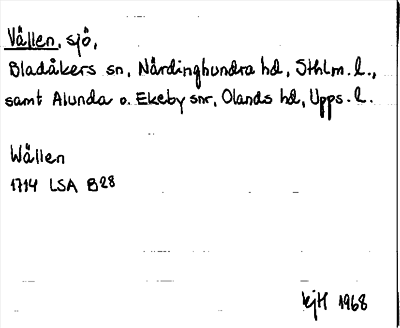 Vällen, sjö,
Bladåkers sn, Närdinghundra hd, Sthlm. l.,
samt Alunda o. Ekeby snr, Olands hd, Upps. l.
Wällen
1714 LSA B28
kjH 1968